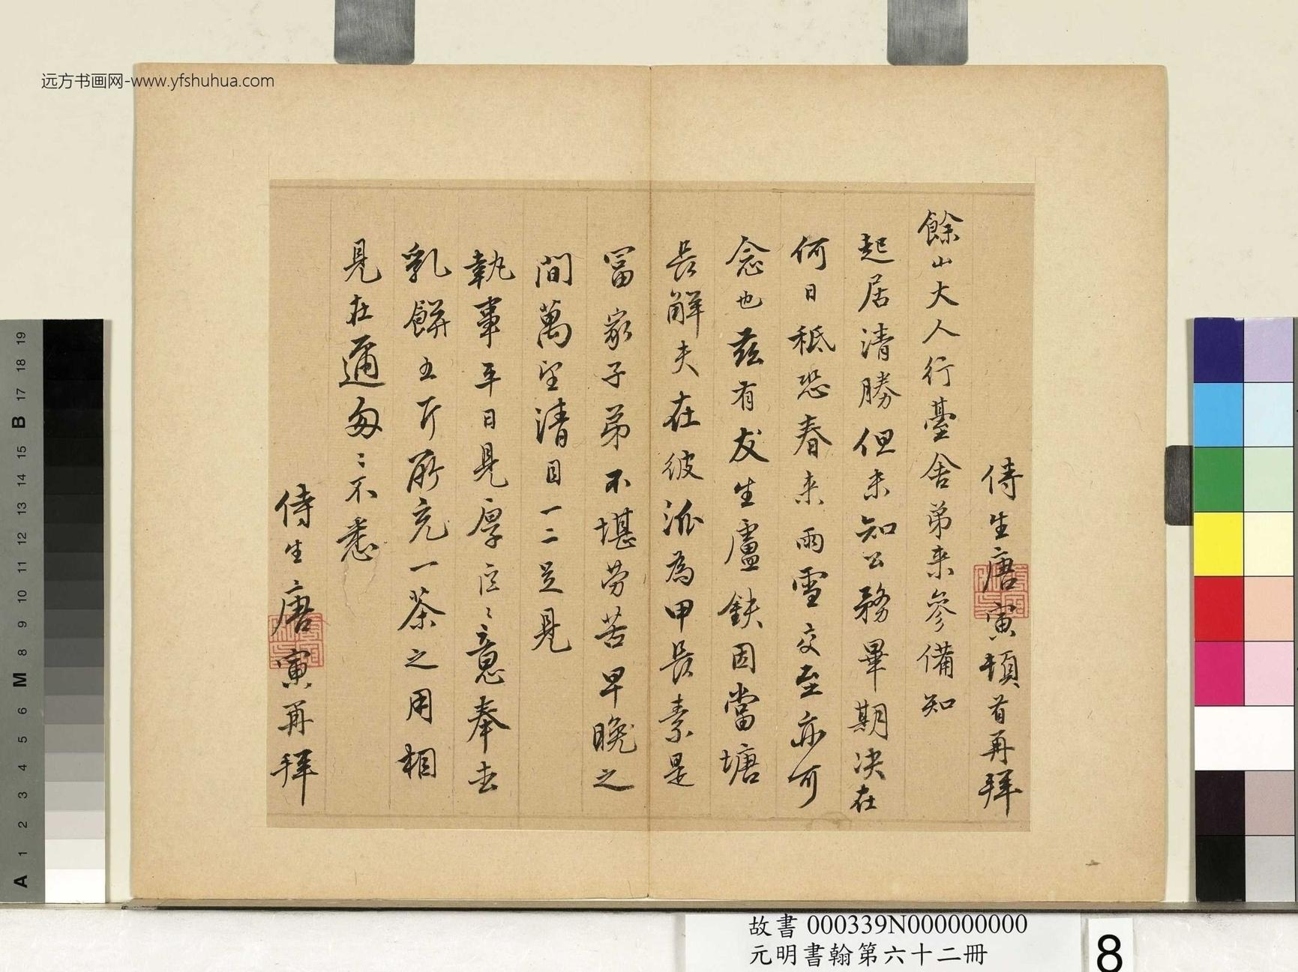 远方书画网-www.yfshuhua.com
侍生唐寅頓首再拜
餘山大人行臺舍弟来參備知
起居清勝但未知公務畢期决在
何日秪恐春来雨雪交至亦可
念也茲有友生盧鈇因當塘
長解夫在彼派為甲長素是
富家子弟不堪劳苦早晚之
間萬望清目一二足見
執事平日見厚區〻意奉去
乳餅五斤所充一茶之用相
見在邇匆〻不悉
侍生唐寅再拜
故書 000339N000000000
元明書翰第六十二冊
8
A 1 2 3 4 5 6 M 8 9 10 11 12 13 14 15 B 17 18 19